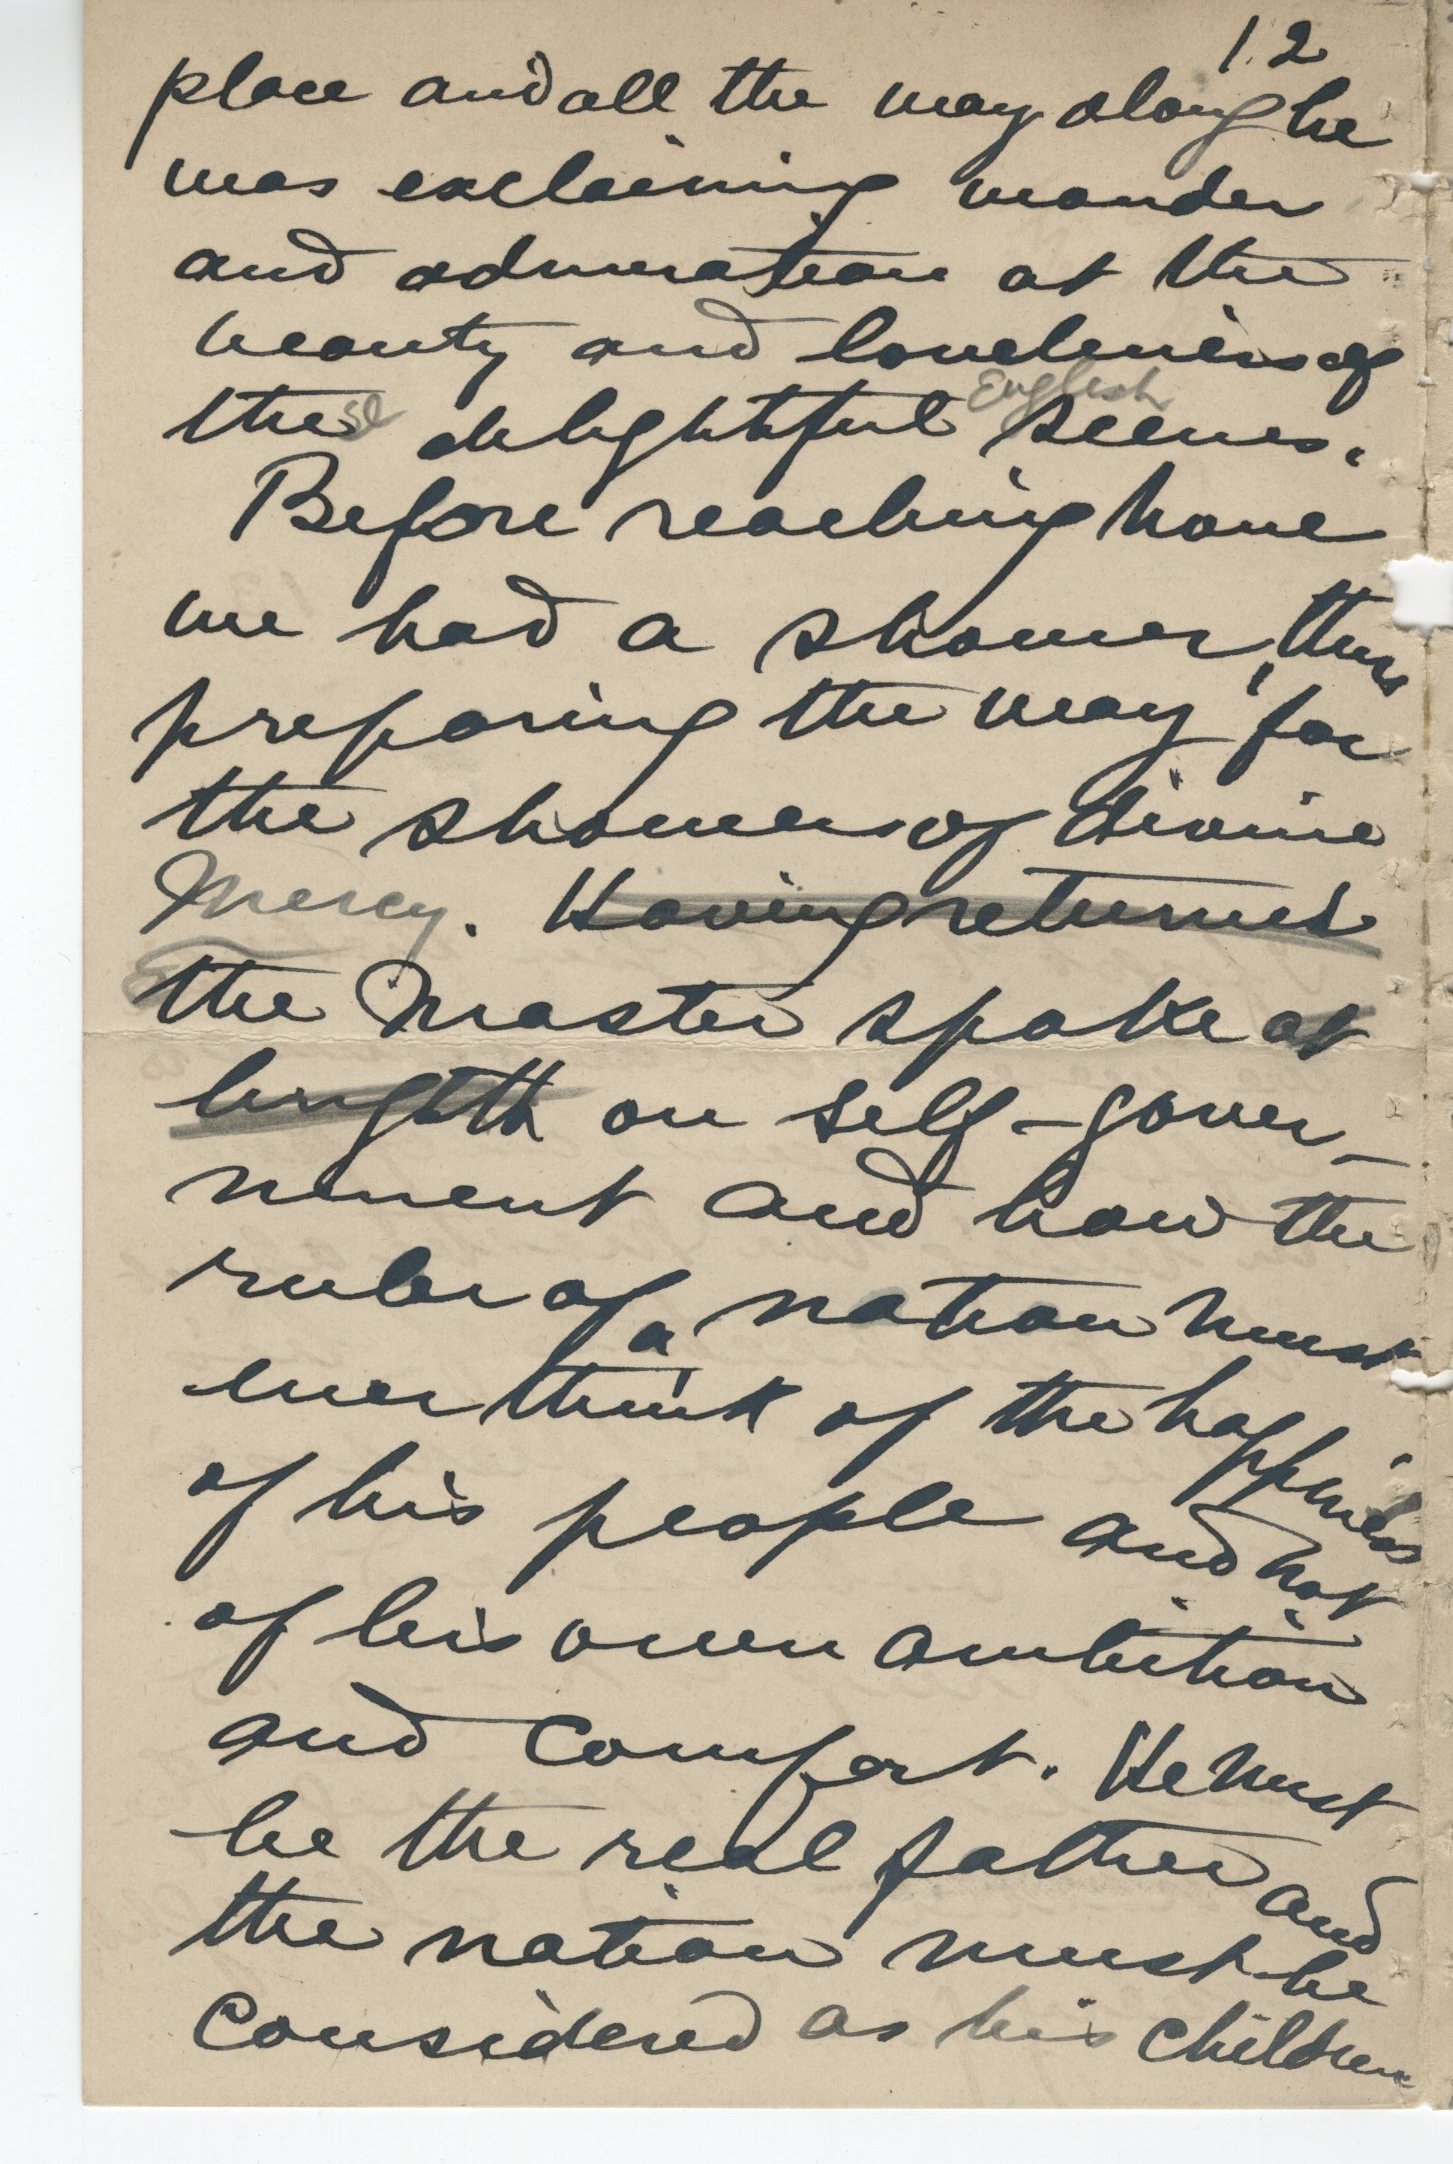 12
place and all the way along he
was exclaiming wonder
and admiration at the
beauty and loveliness of
these delightful English scenes.
Before reaching home
we had a shower, thus
preparing the way for
the showers of divine
Mercy. Having returned
the Master spoke at
length on self-gover-
nment and how the
ruler of a nation must
ever think of the happiness
of his people and not
of his own ambition
and comfort. He must
be the real father and
the nation must be
considered as his children